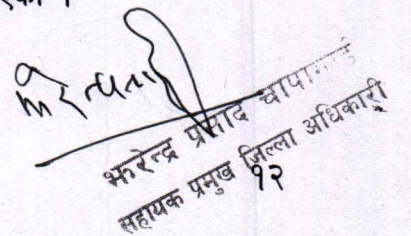 झरेन्द्र प्रसाद चापागाई
सहायक प्रमुख जिल्ला अधिकारी
१२